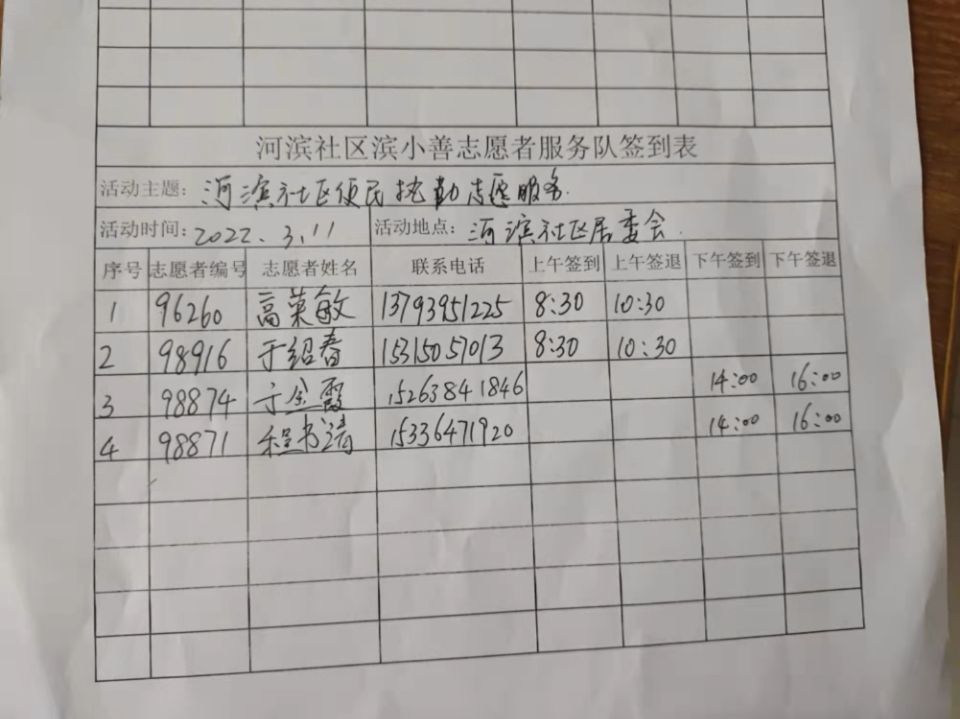 河滨社区滨小善志愿者服务队签到表
活动主题: 河滨社区便民执勤志愿服务.
活动时间: 2022.3.11 活动地点: 河滨社区居委会.
序号 志愿者编号 志愿者姓名 联系电话 上午签到 上午签退 下午签到 下午签退
1 96260 高荣敏 13793951225 8:30 10:30
2 98916 于绍春 15315057013 8:30 10:30
3 98874 于金霞 15263841846 14:00 16:00
4 98871 程书涛 15336471920 14:00 16:00